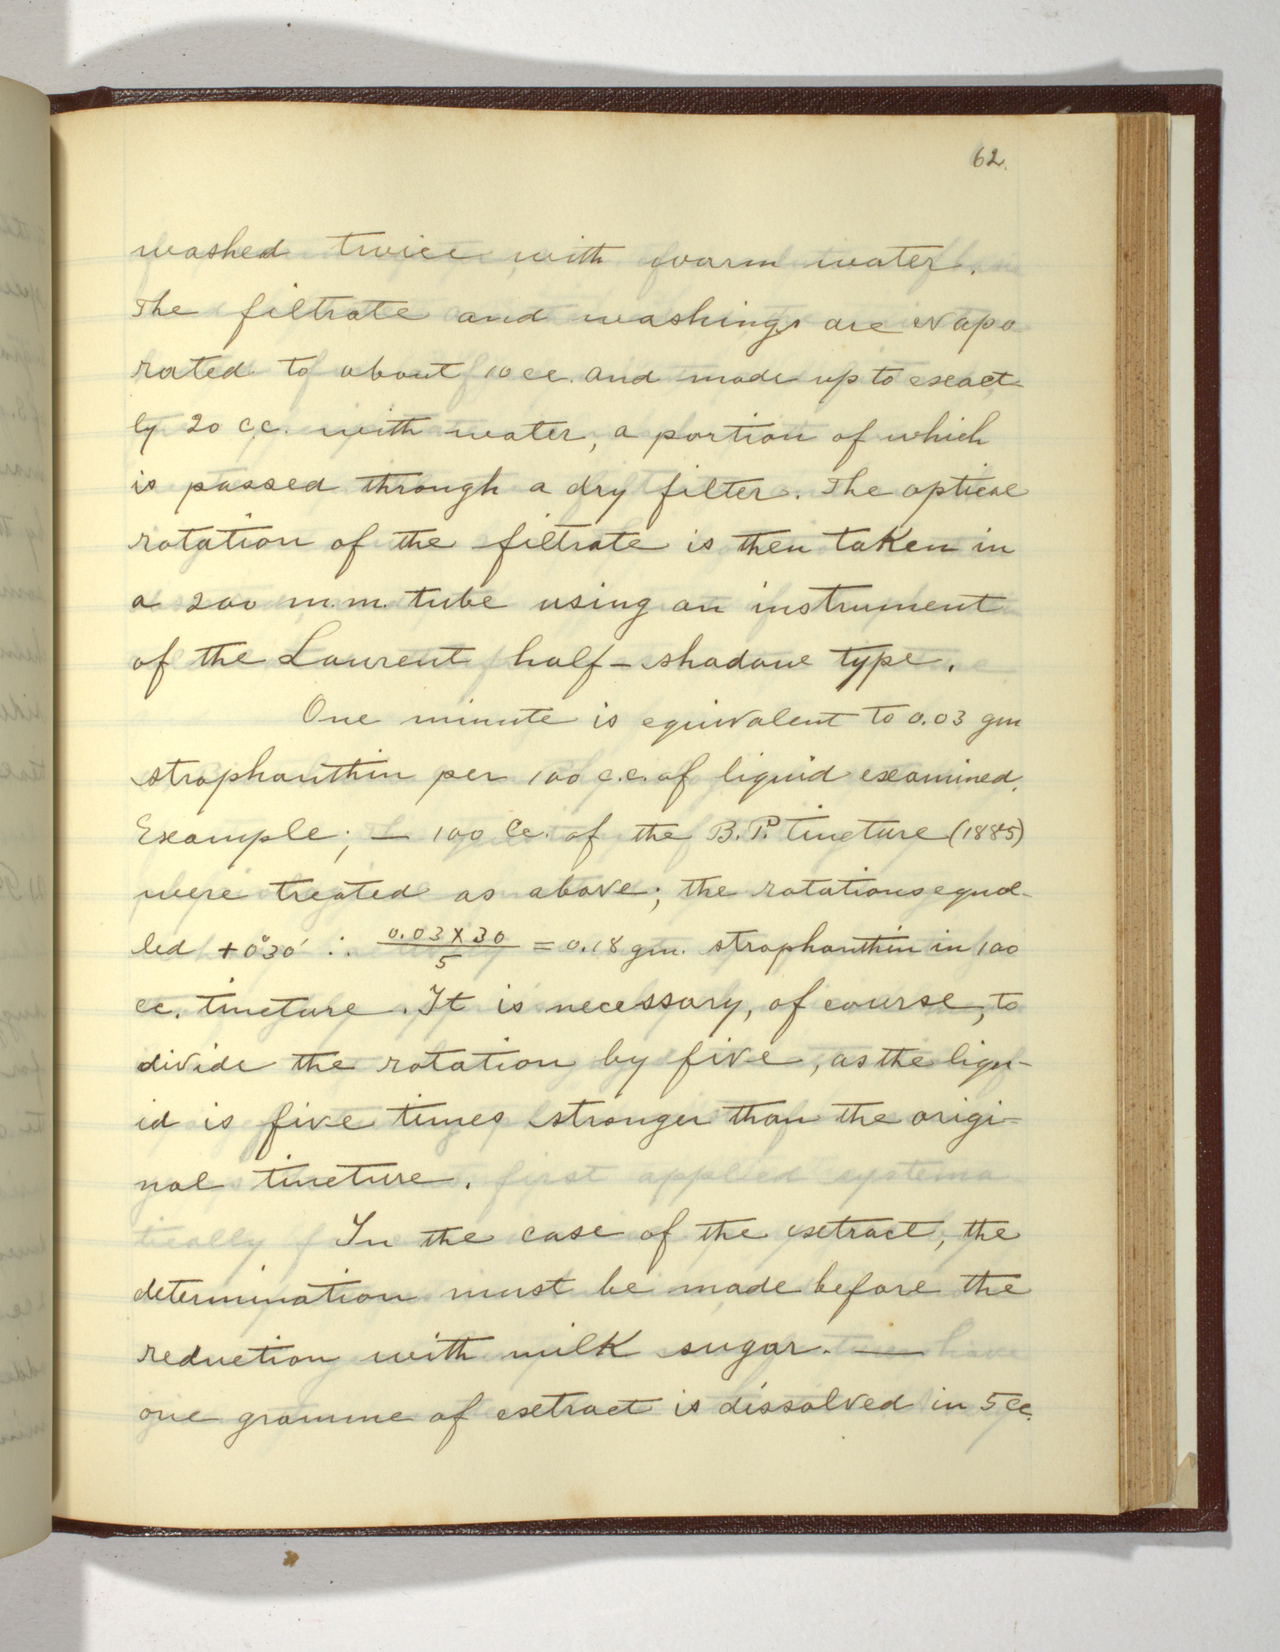 62.
washed twice with warm water.
The filtrate and washings are evapo
rated to about 10 cc. and made up to exact-
ly 20 c.c. with water, a portion of which
is passed through a dry filter. The optical
rotation of the filtrate is then taken in
a 200 m.m. tube using an instrument
of the Laurent half-shadow type.
One minute is equivalent to 0.03 gm
strophanthin per 100 c.c. of liquid examined.
Example; — 100 Cc. of the B.P. tincture (1885)
were treated as above; the rotations equal-
led +0°30′ ∴ 0.03 x 30 / 5 = 0.18 gm. strophanthin in 100
cc. tincture. It is necessary, of course, to
divide the rotation by five, as the liqu-
id is five times stronger than the origi-
nal tincture.
In the case of the extract, the
determination must be made before the
reduction with milk sugar. —
one gramme of extract is dissolved in 5 cc.